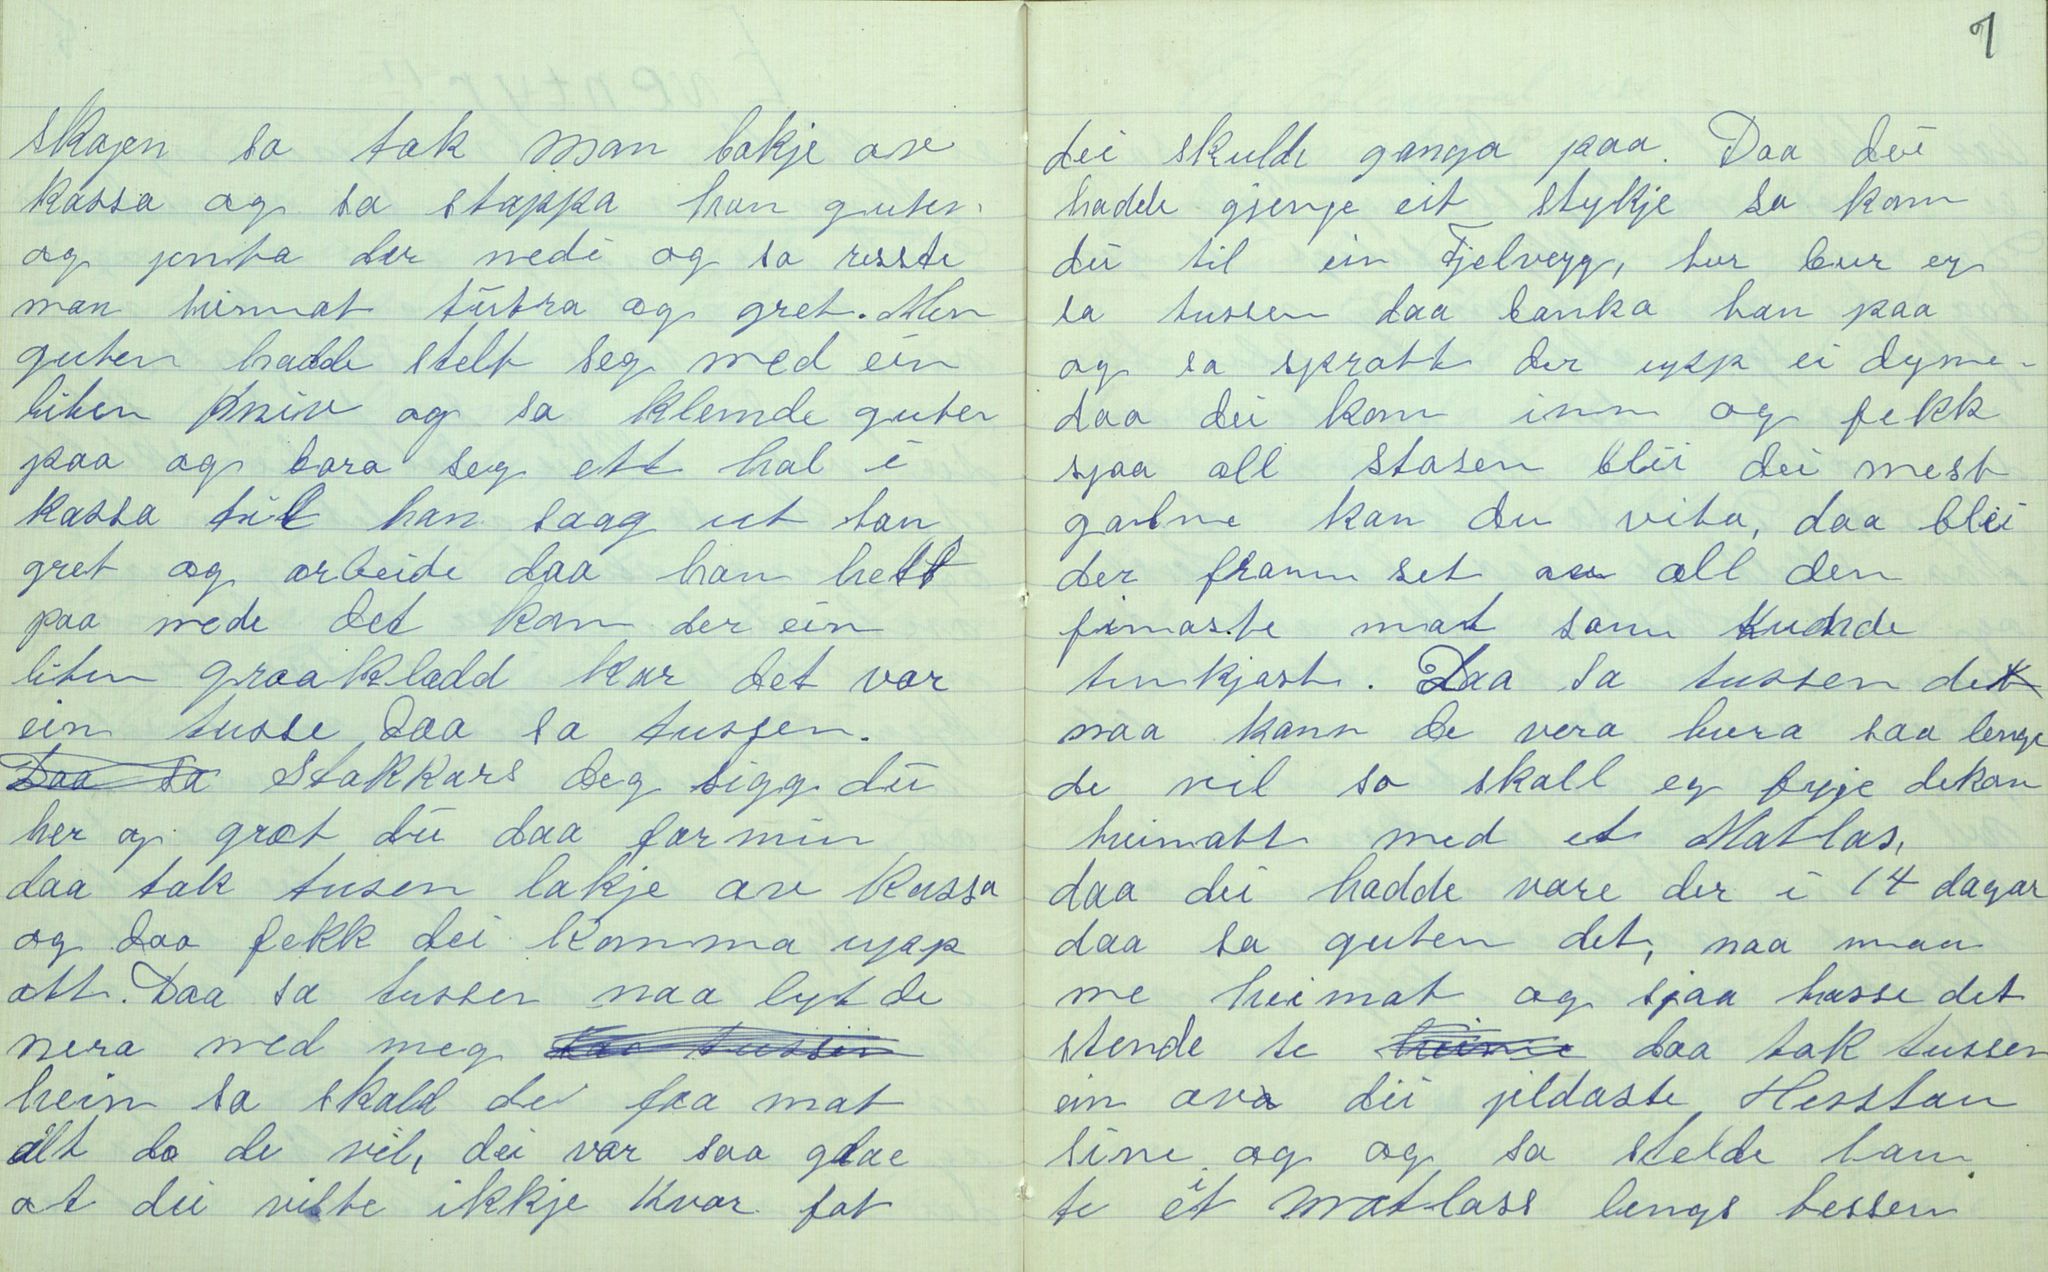 skogen so tok man lokje ov
kassa og so stappa han guten
og jenta der nedi og so reiste
man heimat tütra og gret. Men
guten hadde stelt seg med ein
liten kniv og so klemde guten
paa og bora seg ett hol i
kassa til han saag ut han
gret og orbeide daa han helt
paa mede det kom der ein
liten graakladd kar det var
ein tusse Daa sa tussen.
Daa sa Stakkars deg sigg dü
her og græt dü daa far min
daa tok tusen lokje ov Kassa
og daa fekk dei komma upp
ott. Daa sa tussen naa lyt de
vera med meg
heim so skald de faa mat
alt do de vil, dei var saa glae
at dei viste ikkje kvar fot
7
dei skulde ganga paa. Daa dei
hadde gjenge eit stykje so kom
dei til ein Fjelvegg, her bur eg
sa tussen daa banka han paa
og so spratt der upp ei dyme-
daa dei kom inn og fekk
sjaa all stasen blei dei mest
galne kan du vita, daa blei
der fram set au all den
finaste mat som kunde
tenkjast. Daa sa tussen det
naa kann de vera hera saa lenge
de vil so skall eg fyje dekan
heimatt med et Matlas,
daa dei hadde vore der i 14 dagar
daa sa guten det, naa maa
me heimat og sjaa hasse det
stende te heime daa tok tussen
ein ova dei jildaste Hesstan
sine og og so stelde han
te eit matlass lengs hessen